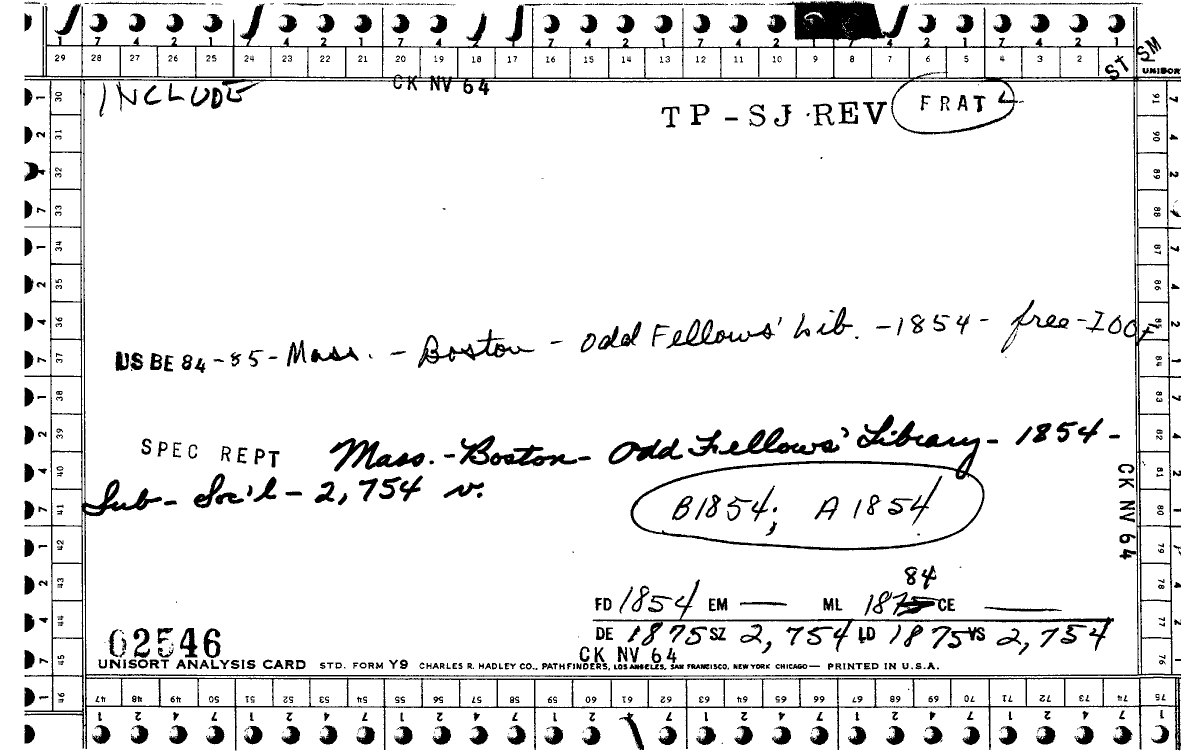 7 4 2 1 7 4 2 1 7 4 2 1 7 4 2 1 7 4 2 1 7 4 2 1
29 28 27 26 25 24 23 22 21 20 19 18 17 16 15 14 13 12 11 10 9 8 7 6 5 4 3 2 1
SM
ST
UNISORT
INCLUDE
CK NV 64
TP-SJ REV
FRAT
US BE 84-85-Mass. - Boston - Odd Fellows' Lib. -1854- free-IOOF
SPEC REPT Mass.-Boston- Odd Fellows' Library- 1854-
Sub- Soc'l- 2,754 v.
B1854; A 1854
CK NV 64
84
FD 1854 EM — ML 1875 CE —
DE 1875 SZ 2,754 LD 1875 VS 2,754
02546
CK NV 64
UNISORT ANALYSIS CARD STD. FORM Y9 CHARLES R. HADLEY CO., PATHFINDERS, LOS ANGELES, SAN FRANCISCO, NEW YORK CHICAGO— PRINTED IN U.S.A.
30 31 32 33 34 35 36 37 38 39 40 41 42 43 44 45 46
91 90 89 88 87 86 85 84 83 82 81 80 79 78 77 76 75
47 48 49 50 51 52 53 54 55 56 57 58 59 60 61 62 63 64 65 66 67 68 69 70 71 72 73 74